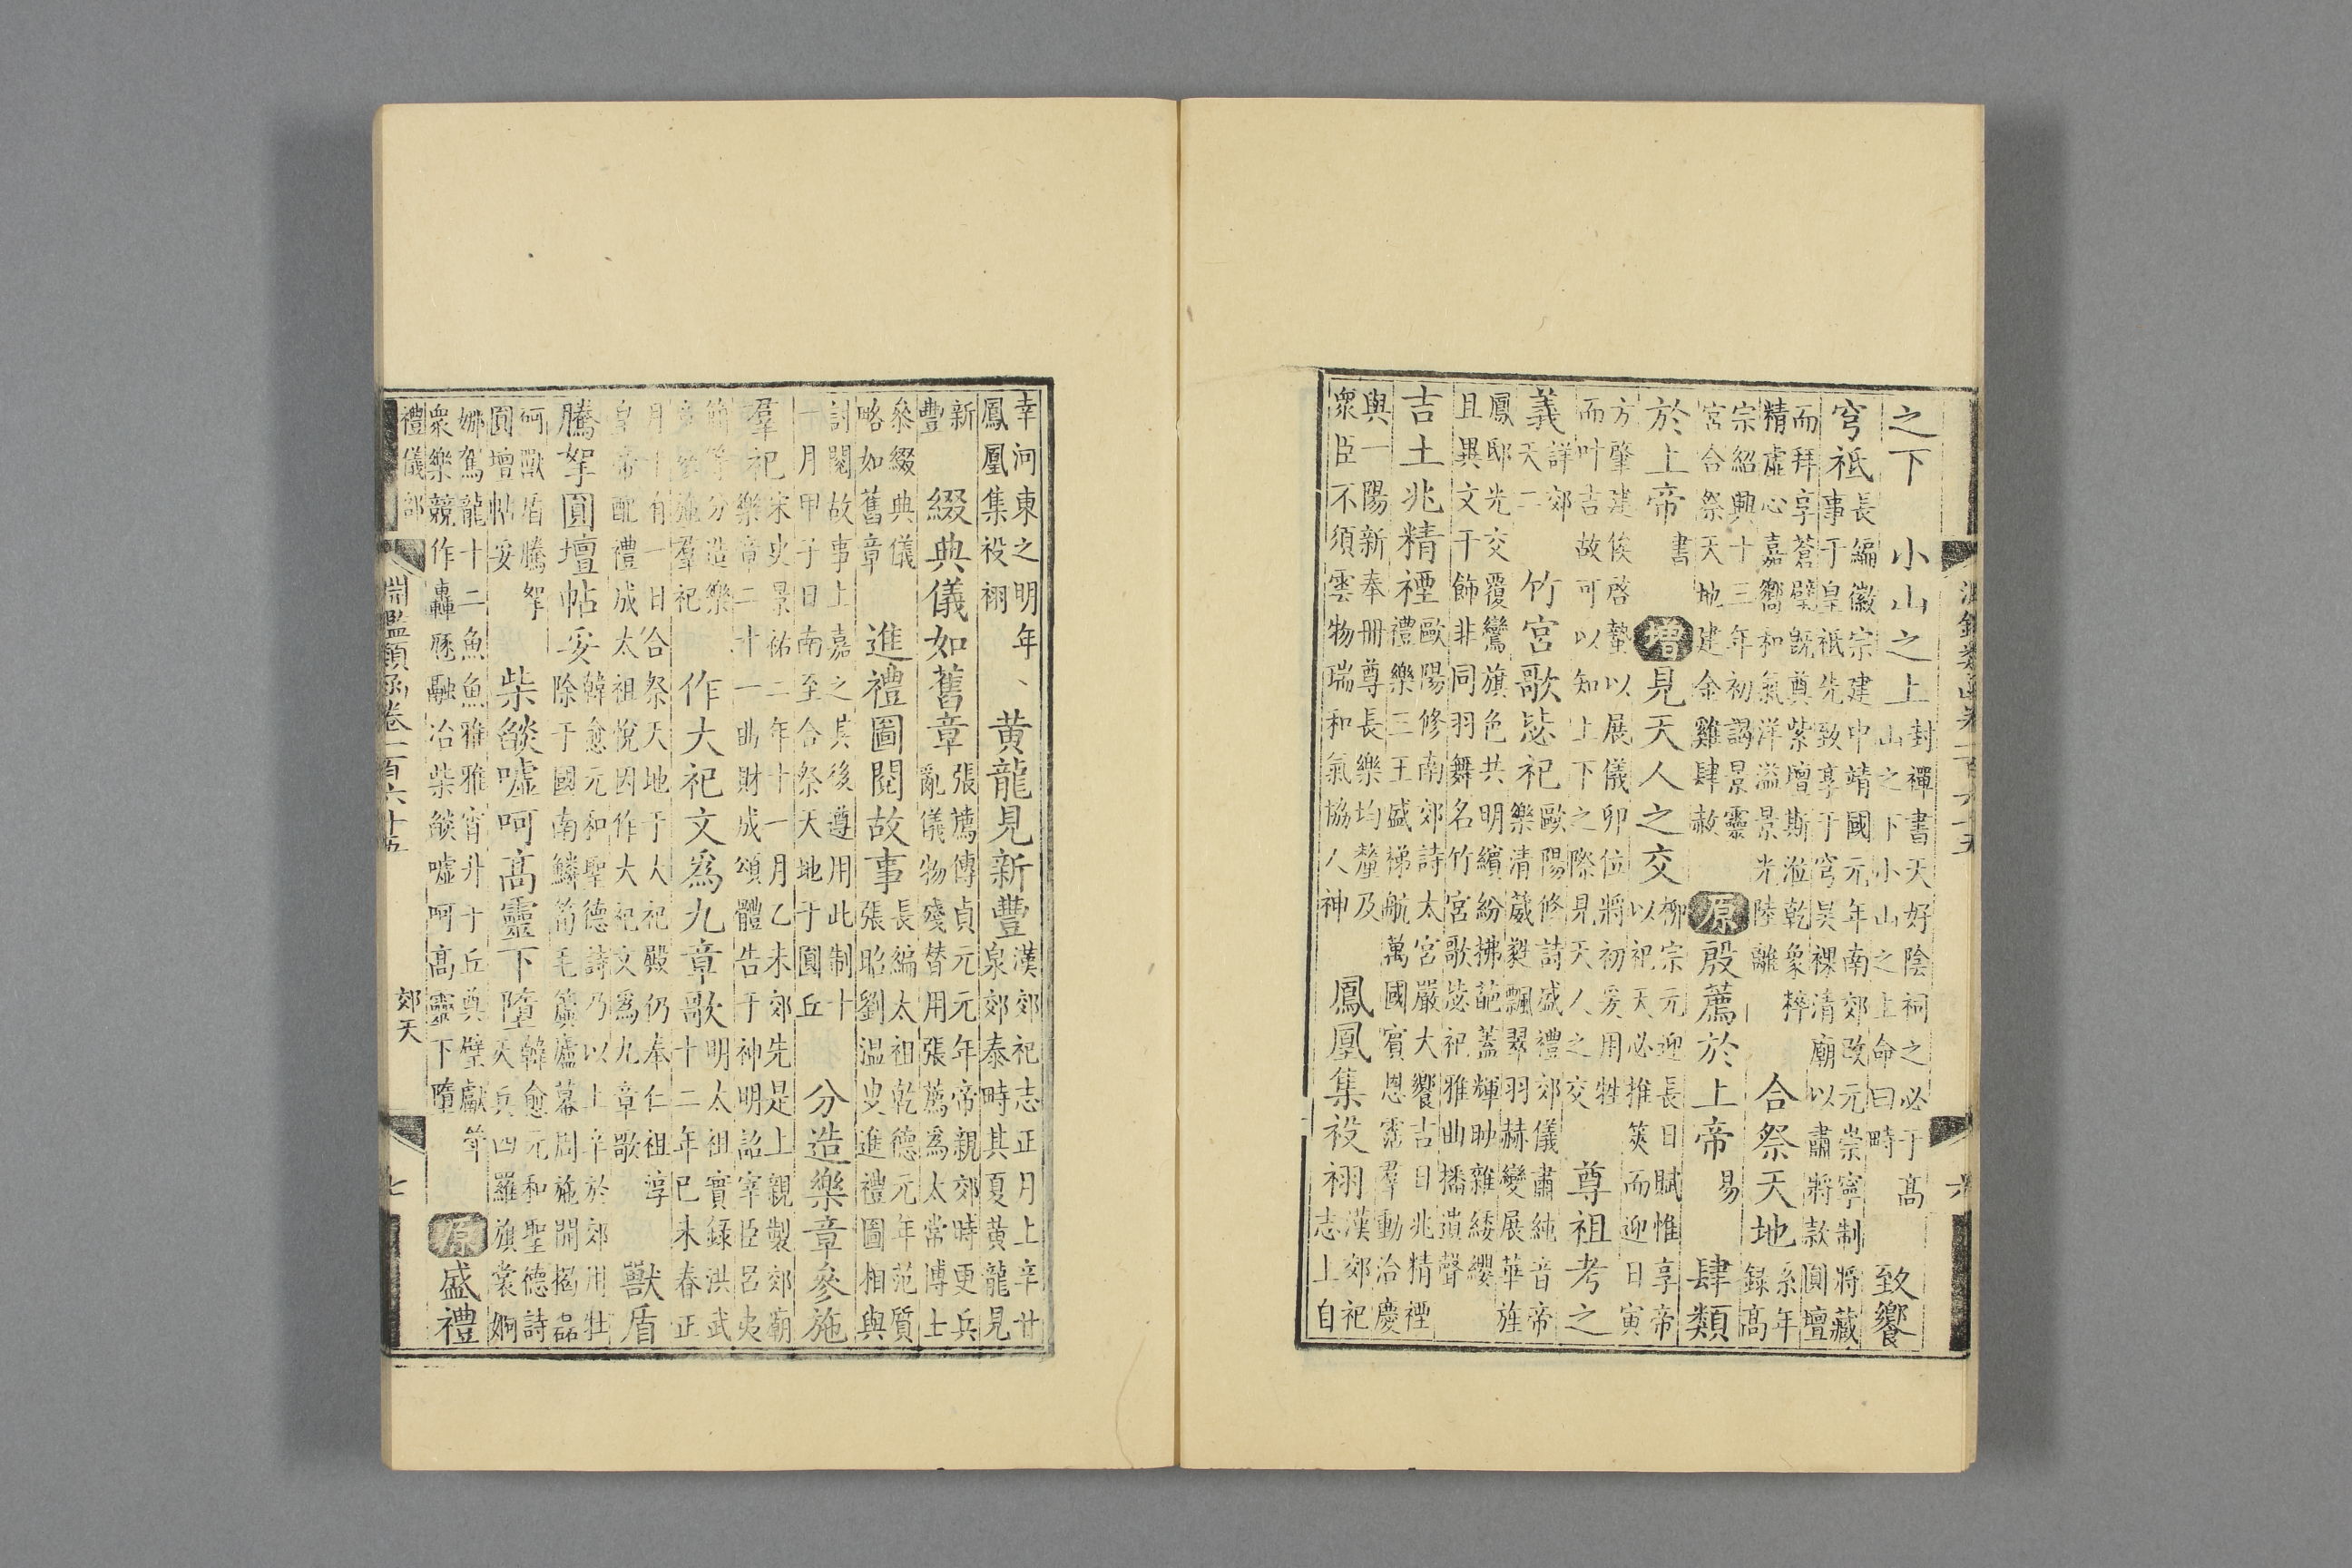 淵鑑類函卷一百六十五 六
之下 小山之上 封禪書天好陰祠之必于高
山之下小山之上命曰畤 致饗
穹祇 長編徽宗建中靖國元年南郊改元崇寧制將藏
事于皇祇先致享于穹昊祼清廟以肅將款圓壇
而拜享蒼璧旣奠紫壇斯涖乾象粹
精虛心嘉嚮和氣洋溢景光陸離 合祭天地 系年
錄高
宗紹興十三年初謁景靈
宮合祭天地建金雞肆赦 原 殷薦於上帝 易 肆類
於上帝 書 增 見天人之交 柳宗元迎長日賦惟享帝
以祀天必推筴而迎日寅
方肇建俟啓蟄以展儀卯位將初爰用牲
而叶吉故可以知上下之際見天人之交 尊祖考之
義 詳郊
天二 竹宮歌毖祀 歐陽修詩盛禮郊儀肅純音帝
樂清葳蕤飄翠羽赫變展華旌
鳳邸光交覆鸞旗色共明繽紛拂葩蓋輝助雜緌纓
且異文干飾非同羽舞名竹宮歌毖祀雅曲播遺聲
吉土兆精禋 歐陽修南郊詩太宮嚴大饗吉日兆精禋
禮樂三王盛梯航萬國賓恩霑羣動洽慶
與一陽新奉冊尊長樂均釐及
衆臣不須雲物瑞和氣協人神 鳳凰集祋祤 漢郊祀
志上自
幸河東之明年、
鳳凰集祋祤 黃龍見新豐 漢郊祀志正月上辛廿
泉郊泰畤其夏黃龍見
新
豐 綴典儀如舊章 張薦傳貞元元年帝親郊時更兵
亂儀物殘替用張薦爲太常博士
叅綴典儀
略如舊章 進禮圖閱故事 長編太祖乾德元年范質
張昭劉温叟進禮圖相與
討閱故事上嘉之其後遵用此制十
一月甲子日南至合祭天地于圓丘 分造樂章參施
羣祀 宋史景祐二年十一月乙未郊先是上親製郊廟
樂章二十一曲財成頌體告于神明詔宰臣呂夷
簡等分造樂
章參施羣祀 作大祀文爲九章歌 明太祖實錄洪武
十二年巳未春正
月十有一日合祭天地于大祀殿仍奉仁祖淳
皇帝配禮成太祖悅因作大祀文爲九章歌 獸盾
騰拏圓壇帖妥 韓愈元和聖德詩乃以上辛於郊用牡
除于國南鱗笱毛簴廬幕周施開揭磊
砢獸盾騰拏
圓壇帖妥 柴燄噓呵高靈下墮 韓愈元和聖德詩
天兵四羅旗裳婀
娜駕龍十二魚魚雅雅宵升于丘奠璧獻斝
衆樂競作轟豗融冶柴燄噓呵高靈下墮 原 盛禮
禮儀部 淵鑑類函卷一百六十五 郊天 七